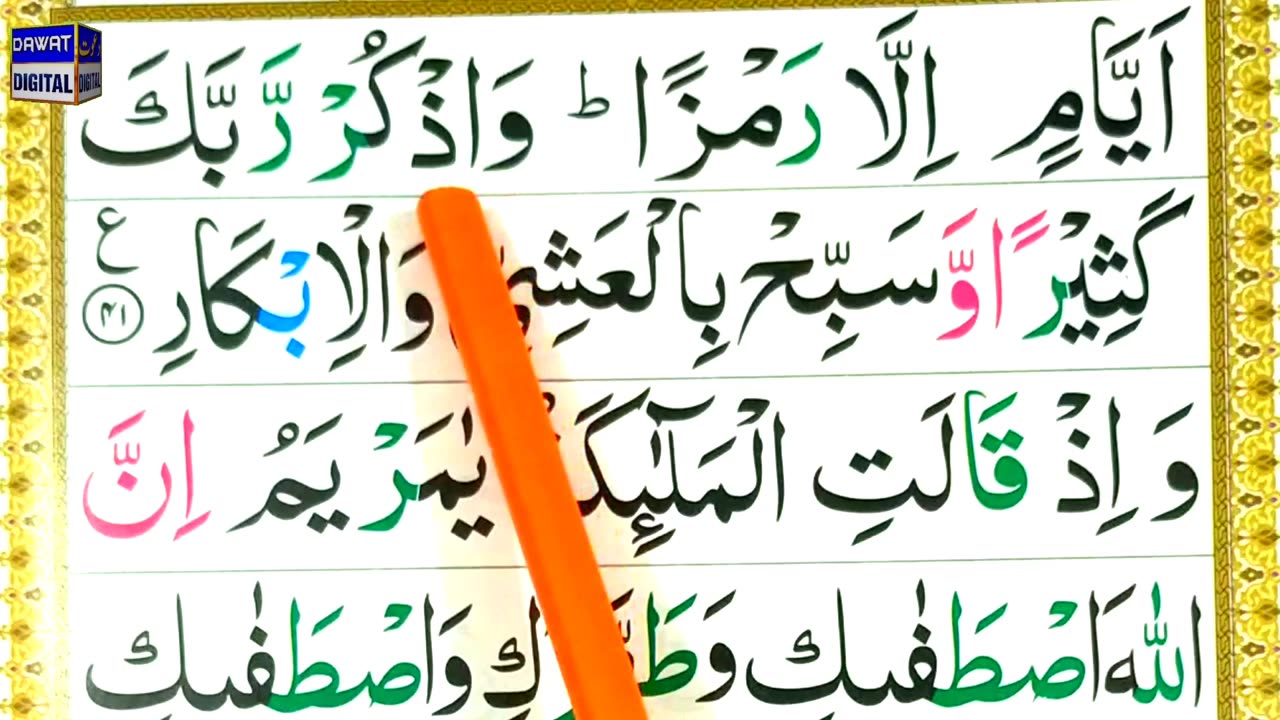 DAWAT دعوت
DIGITAL DIGITAL
اَيَّامٍ اِلَّا رَمْزًا ؕ وَاذْكُرْ رَّبَّكَ
كَثِيْرًا وَّسَبِّحْ بِالْعَشِىِّ وَالْاِبْكَارِ ع ﴿۴۱﴾
وَاِذْ قَالَتِ الْمَلٰٓئِكَةُ يٰمَرْيَمُ اِنَّ
اللّٰهَ اصْطَفٰىكِ وَطَهَّرَكِ وَاصْطَفٰىكِ